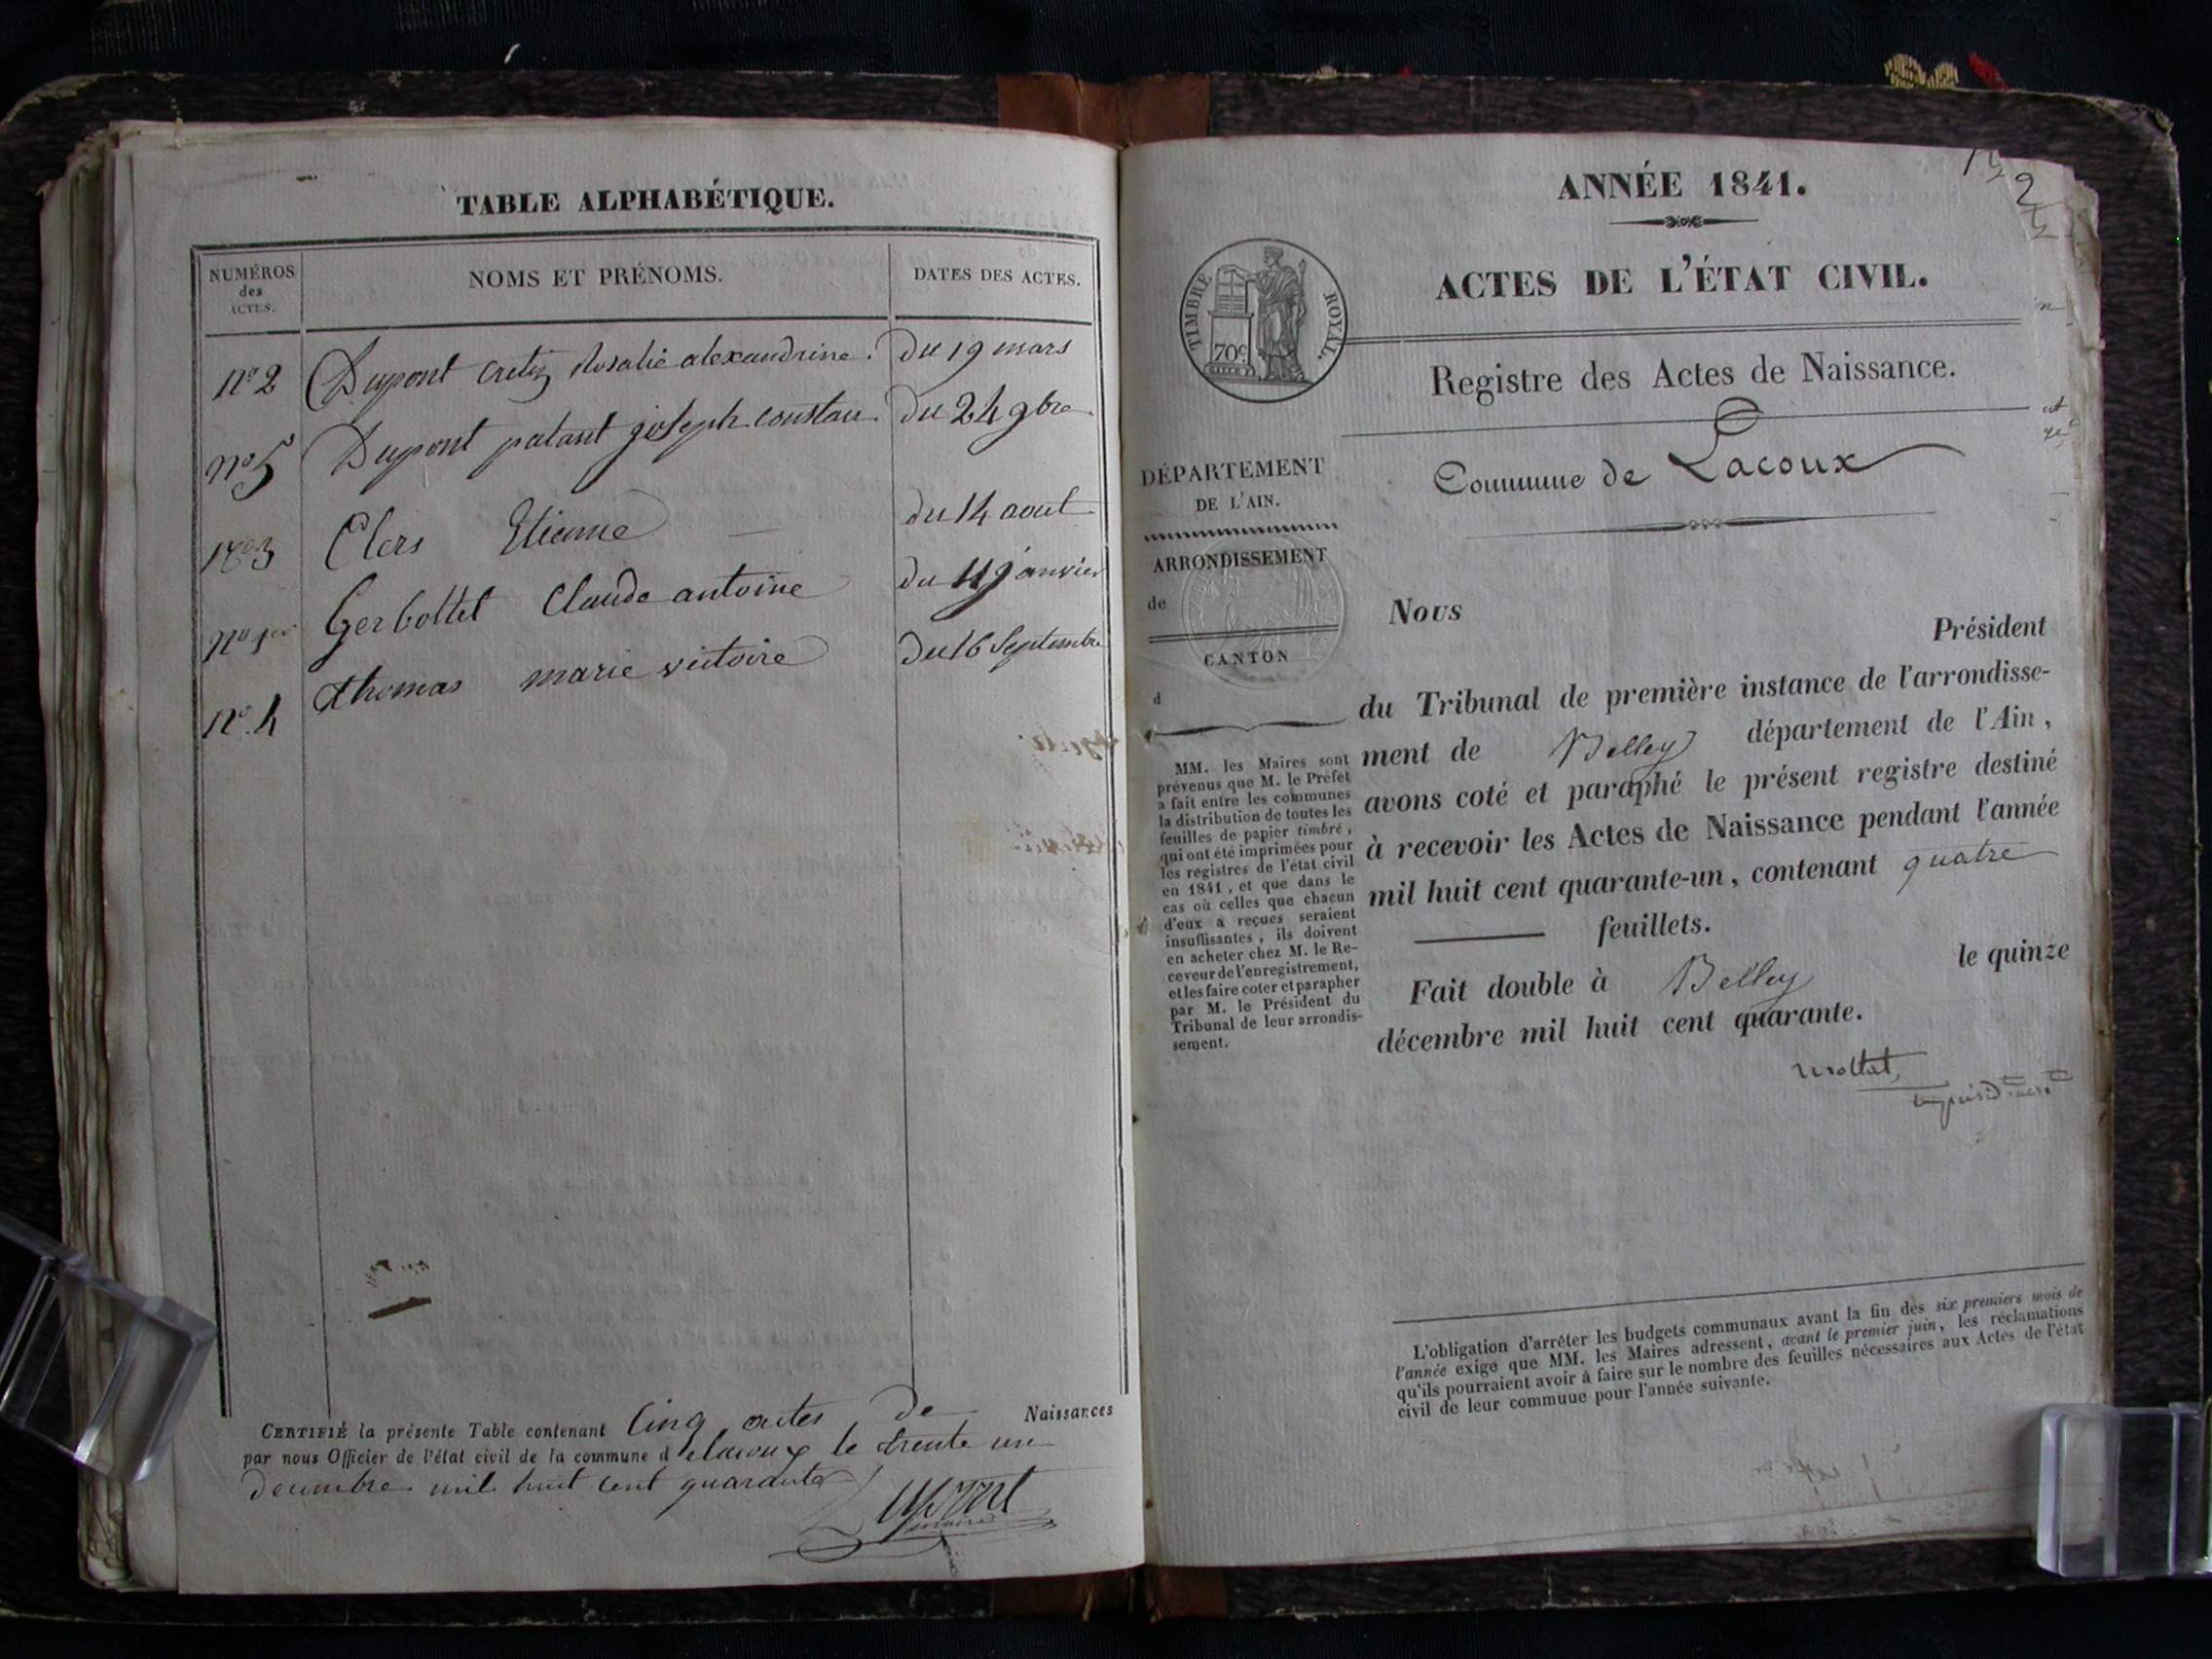 TABLE ALPHABÉTIQUE.
NUMÉROS
des
ACTES.
NOMS ET PRÉNOMS.
DATES DES ACTES.
nº 2 Dupont cretiz Rosalie alexandrine. du 19 mars
nº 5 Dupont patant joseph constan. du 24 9bre
nº 3 Clers Etienne du 14 aout
nº 1er Gerbottet Claude antoine du 11 janvier
nº 4 thomas marie victoire du 16 Septembre
CERTIFIÉ la présente Table contenant Cinq actes de Naissances
par nous Officier de l'état civil de la commune d elacoux le trente un
decembre mil huit cent quarante
Dupont
maire
2
ANNÉE 1841.
ACTES DE L'ÉTAT CIVIL.
TIMBRE ROYAL.
70c
Registre des Actes de Naissance.
Commune de Lacoux
DÉPARTEMENT
DE L'AIN.
ARRONDISSEMENT
de
CANTON
d
MM. les Maires sont
prévenus que M. le Préfet
a fait entre les communes
la distribution de toutes les
feuilles de papier timbré,
qui ont été imprimées pour
les registres de l'état civil
en 1841, et que dans le
cas où celles que chacun
d'eux a reçues seraient
insuffisantes, ils doivent
en acheter chez M. le Re-
ceveur de l'enregistrement,
et les faire coter et parapher
par M. le Président du
Tribunal de leur arrondis-
sement.
Nous
Président
du Tribunal de première instance de l'arrondisse-
ment de Belley département de l'Ain,
avons coté et paraphé le présent registre destiné
à recevoir les Actes de Naissance pendant l'année
mil huit cent quarante-un, contenant quatre
feuillets.
Fait double à Belley le quinze
décembre mil huit cent quarante.
L'obligation d'arrêter les budgets communaux avant la fin des six premiers mois de
l'année exige que MM. les Maires adressent, avant le premier juin, les réclamations
qu'ils pourraient avoir à faire sur le nombre des feuilles nécessaires aux Actes de l'état
civil de leur commune pour l'année suivante.